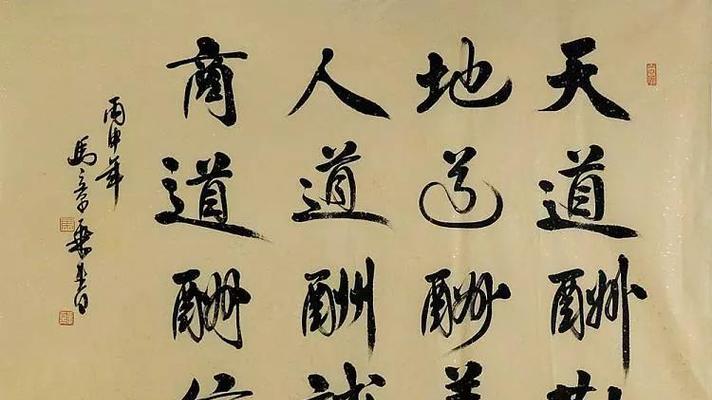 天道酬勤
地道酬善
人道酬誠
商道酬信
丙申年
馬